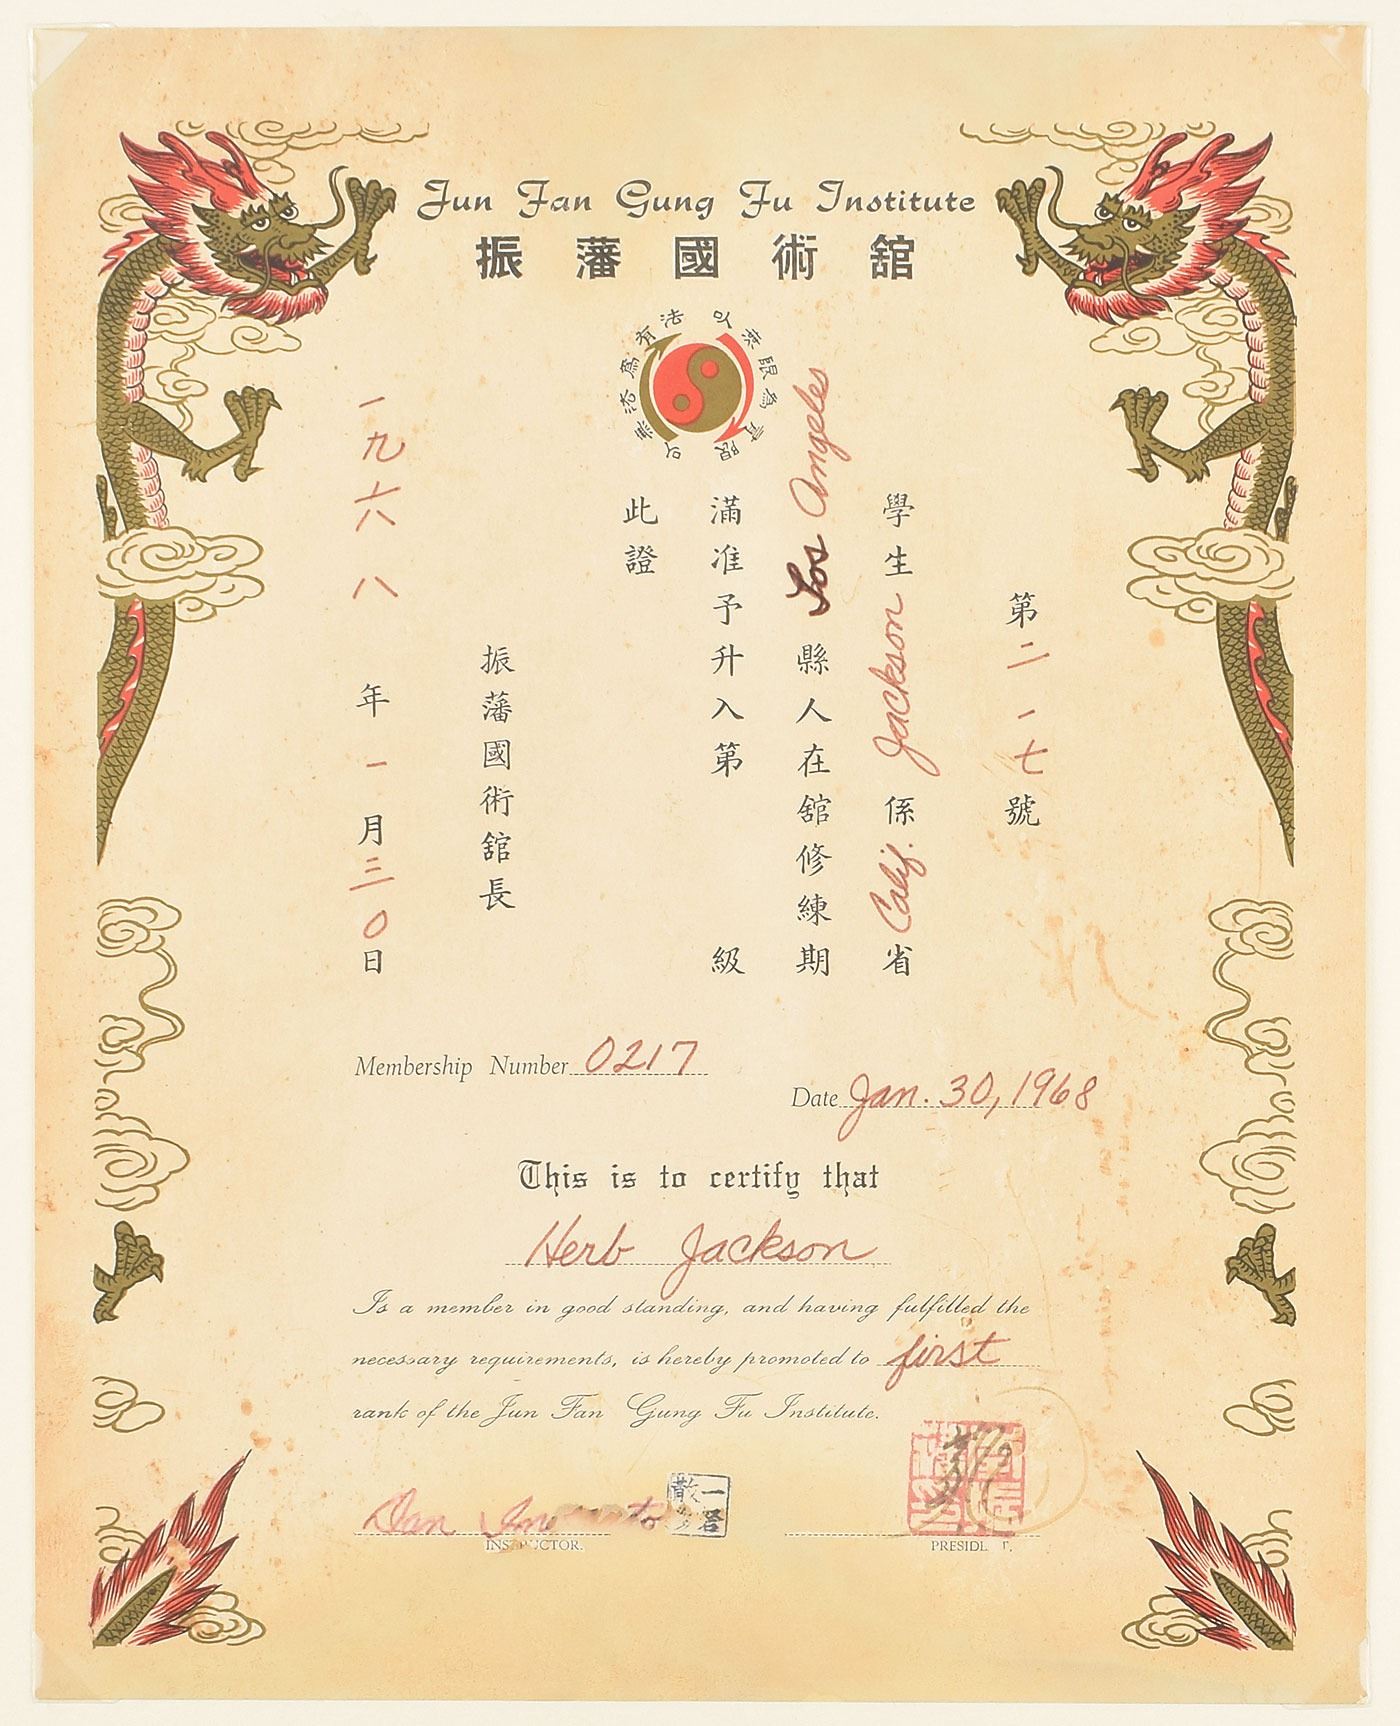 Jun Fan Gung Fu Institute
振藩國術舘
以無法為有法
以無限為有限
第二一七號
學生 Jackson 係 Calif. 省
Los Angeles 縣人在舘修練期
滿准予升入第 級
此證
振藩國術舘長
一九六八年一月三0日
Membership Number 0217
Date Jan. 30, 1968
This is to certify that
Herb Jackson
Is a member in good standing, and having fulfilled the
necessary requirements, is hereby promoted to first
rank of the Jun Fan Gung Fu Institute.
Dan
INSTRUCTOR.
PRESIDENT.